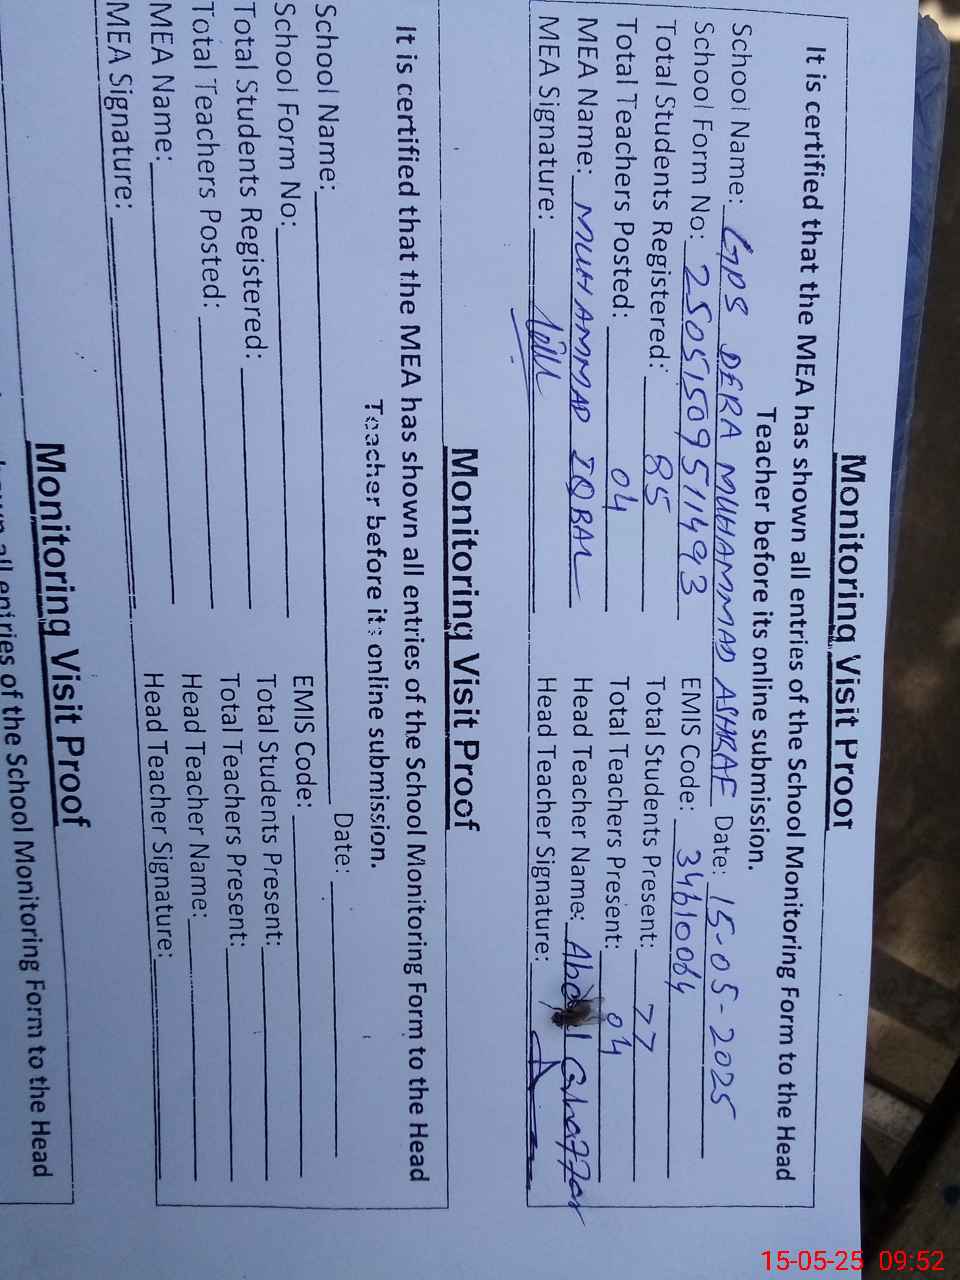 Monitoring Visit Proof
It is certified that the MEA has shown all entries of the School Monitoring Form to the Head
Teacher before its online submission.
School Name: GPS DERA MUHAMMAD ASHRAF Date: 15-05-2025
School Form No: 25051509511493 EMIS Code: 34610064
Total Students Registered: 85 Total Students Present: 77
Total Teachers Posted: 04 Total Teachers Present: 04
MEA Name: MUHAMMAD IQBAL Head Teacher Name: Abdul Ghaffar
MEA Signature: Head Teacher Signature:
Monitoring Visit Proof
It is certified that the MEA has shown all entries of the School Monitoring Form to the Head
Teacher before its online submission.
School Name: Date:
School Form No: EMIS Code:
Total Students Registered: Total Students Present:
Total Teachers Posted: Total Teachers Present:
MEA Name: Head Teacher Name:
MEA Signature: Head Teacher Signature:
Monitoring Visit Proof
all entries of the School Monitoring Form to the Head
15-05-25 09:52